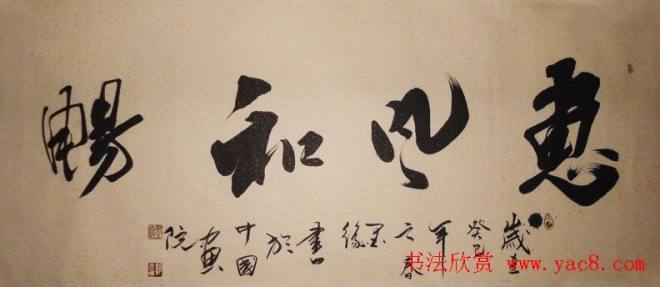 惠风和暢
歲在
癸巳
年
之春
墨緣
書
於
中國
畫
院
书法欣赏 www.yac8.com